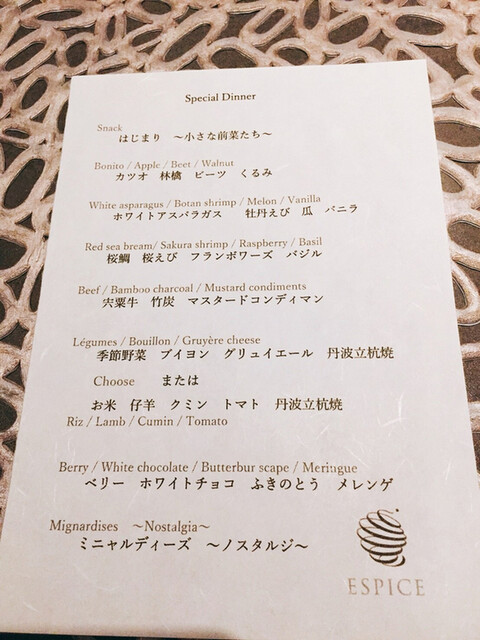 Special Dinner
Snack
はじまり ～小さな前菜たち～
Bonito / Apple / Beet / Walnut
カツオ 林檎 ビーツ くるみ
White asparagus / Botan shrimp / Melon / Vanilla
ホワイトアスパラガス 牡丹えび 瓜 バニラ
Red sea bream/ Sakura shrimp / Raspberry / Basil
桜鯛 桜えび フランボワーズ バジル
Beef / Bamboo charcoal / Mustard condiments
宍粟牛 竹炭 マスタードコンディマン
Légumes / Bouillon / Gruyère cheese
季節野菜 ブイヨン グリュイエール 丹波立杭焼
Choose または
お米 仔羊 クミン トマト 丹波立杭焼
Riz / Lamb / Cumin / Tomato
Berry / White chocolate / Butterbur scape / Meringue
ベリー ホワイトチョコ ふきのとう メレンゲ
Mignardises ～Nostalgia～
ミニャルディーズ ～ノスタルジ～
ESPICE